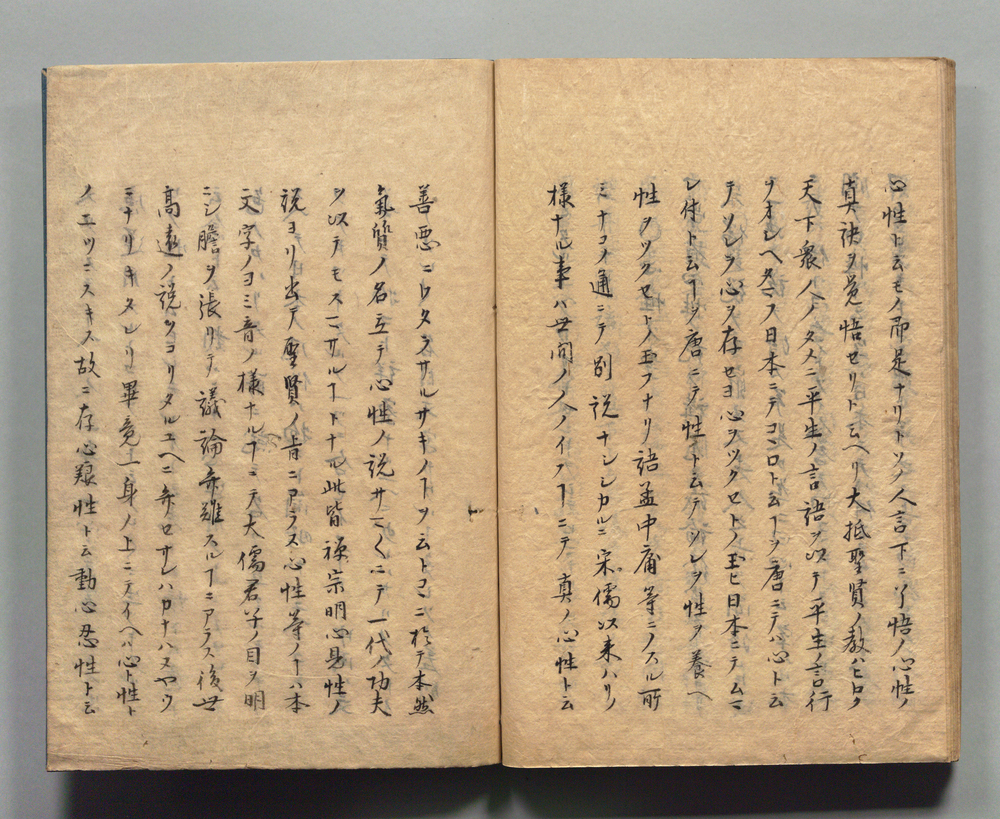 心性ト云モノ即是ナリトソノ人言下ニ了悟ノ心性ノ
真訣ヲ覚悟セリト云ヘリ大抵聖賢ノ教ハヒロク
天下衆人ノタメニ平生ノ言語ヲ以テ平生ノ言行
ヲオシヘタマフ日本ニテコヽロト云ヿヲ唐ニテハ心ト云
テソレヲ心ヲ存セヨ心ヲツクセトノ玉ヒ日本ニテムマ
レ付ト云ヿヲ唐ニテ性ト云テソレヲ性ヲ養ヘ
性ヲツクセトノ玉フナリ語孟中庸等ニノスル所
ミナコノ通ニテ別説ナシシカルニ宋儒以来ハリ
様ナル事ハ世間ノ人ノイフヿニテ真ノ心性ト云
善悪ニワタラサルサキノヿヲ云トコヽニ於テ本然
氣質ノ名立テ心性ノ説サマ〱ニテ一代ノ功夫
ヲ以テモスマサルヿトナル此皆禅宗明心見性ノ
説ヨリ出テ聖賢ノ旨ニアラス心性等ノヿハ本
文字ノヨミ音ノ様ナルヿニテ大儒君子ノ目ヲ明
ニシ膽ヲ張リテ議論弁難スルヿニアラス後世
高遠ノ説ヲコリタルユヘニ弁セサレハカナハヌヤウ
ニナリキタレリ畢竟一身ノ上ニテイヘハ心ト性ト
ノ二ツニスキス故ニ存心養性ト云動心忍性ト云